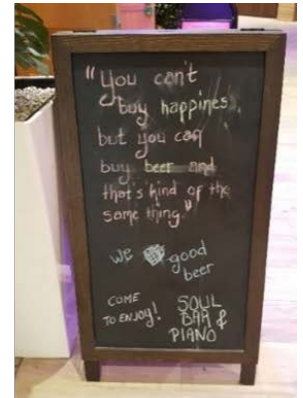 "You can't
buy happines,
but you can
buy beer and
that's kind of the
same thing"
we good
beer
COME
TO ENJOY!
SOUL
BAR &
PIANO